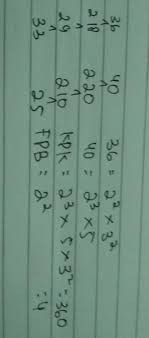 36 40 36 = 2² × 3²
2 18 2 20 40 = 2³ × 5
2 9 2 10 KPK = 2³ × 5 × 3² = 360
3 3 2 5 FPB = 2² = 4